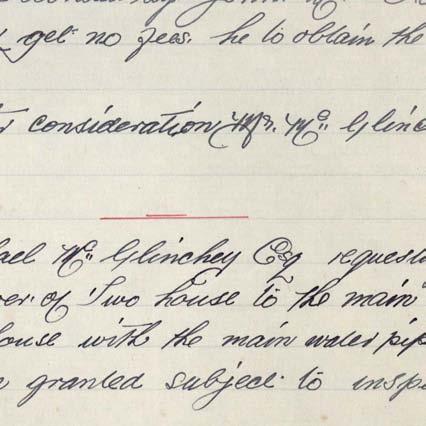 get no fees. he to obtain the
consideration Mr. Mc. Glinc
ael Mc. Glinchey Esq request
er of Two house to the main
ouse with the main water pip
granted subject to inspe